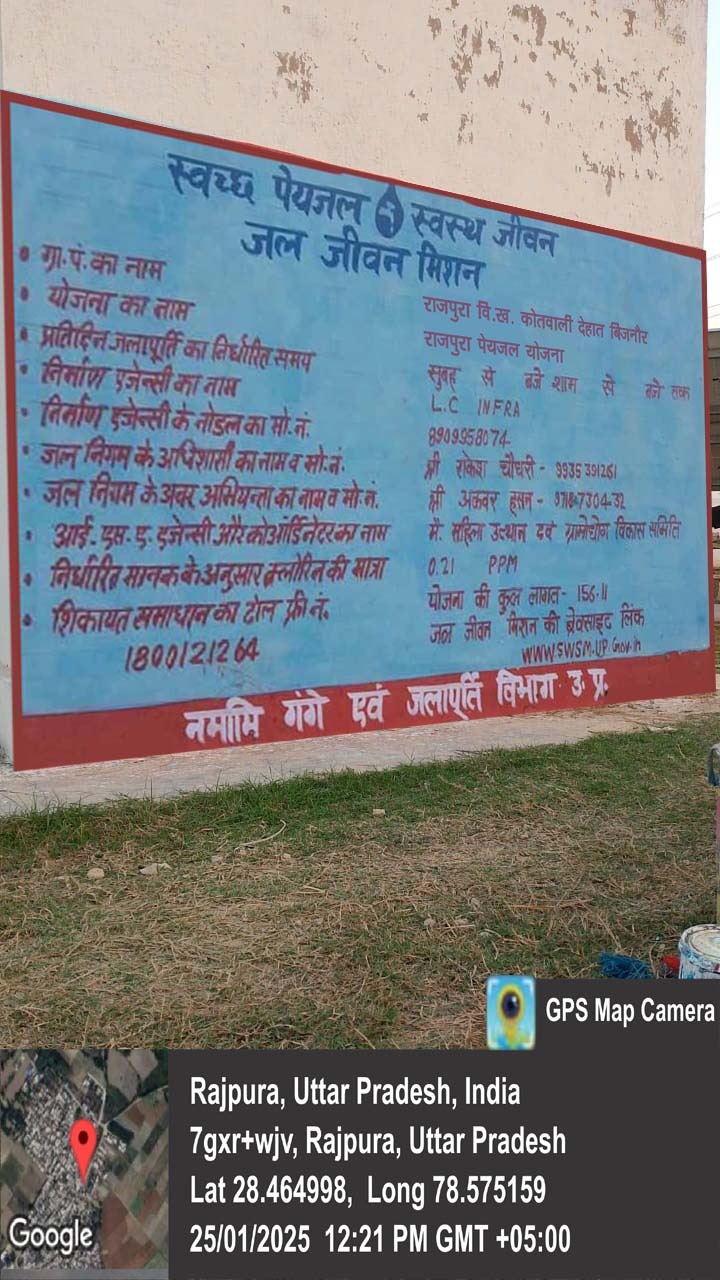 स्वच्छ पेयजल स्वस्थ जीवन
जल जीवन मिशन
• ग्रा.पं.का नाम
राजपुरा वि.ख. कोतवाली देहात बिजनौर
• योजना का नाम
राजपुरा पेयजल योजना
• प्रतिदिन जलापूर्ति का निर्धारित समय
सुबह से बजे शाम से बजे तक
• निर्माण एजेन्सी का नाम
L.C INFRA
• निर्माण एजेन्सी के नोडल का मो.नं.
8909958074
• जल निगम के अधिशासी का नाम व मो.नं.
श्री राकेश चौधरी - 9935391261
• जल निगम के अवर अभियन्ता का नाम व मो.नं.
श्री अकबर हसन - 97187304-32
• आई-एस-ए-एजेन्सी और कोऑर्डिनेटर का नाम
मै. महिला उत्थान एवं ग्रामोद्योग विकास समिति
• निर्धारित मानक के अनुसार क्लोरिन की मात्रा
0.21 PPM
• शिकायत समाधान का टोल फ्री नं.
1800121264
योजना की कुल लागत - 156.11
जल जीवन मिशन की वेबसाइट लिंक
www.swsm.up.gov.in
नमामि गंगे एवं जलापूर्ति विभाग उ.प्र.
GPS Map Camera
Rajpura, Uttar Pradesh, India
7gxr+wjv, Rajpura, Uttar Pradesh
Lat 28.464998, Long 78.575159
25/01/2025 12:21 PM GMT +05:00
Google